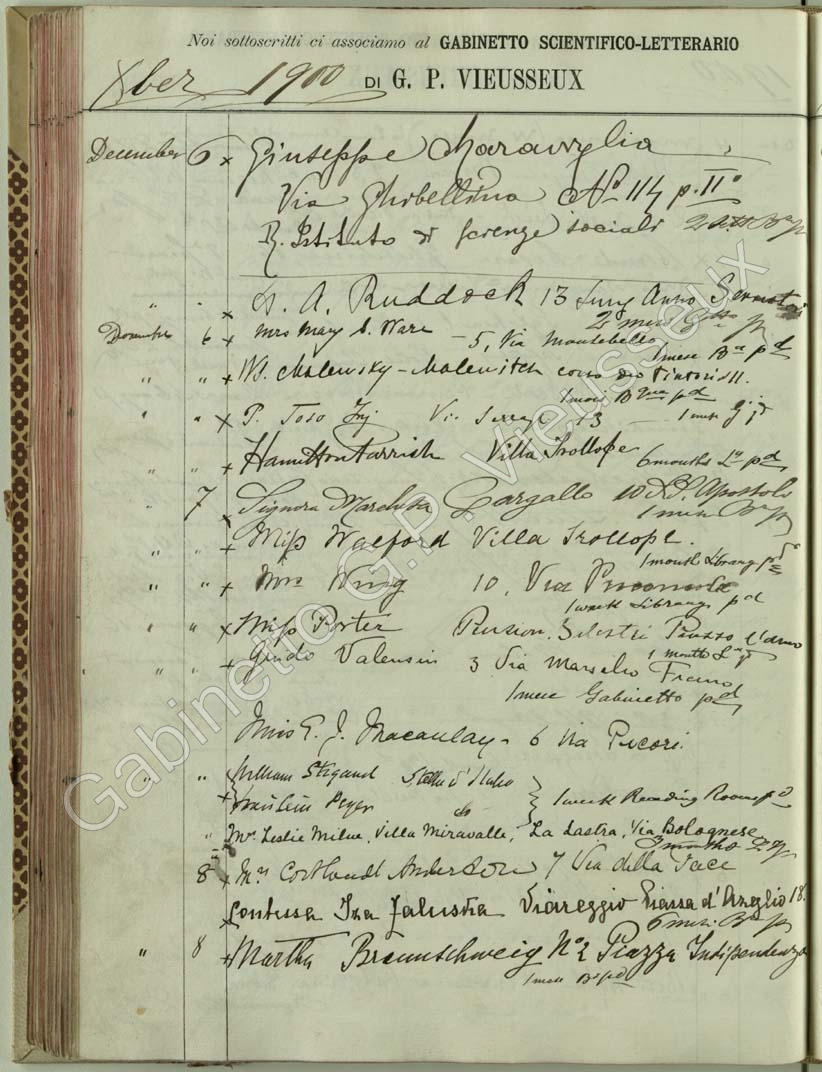 Noi sottoscritti ci associamo al GABINETTO SCIENTIFICO-LETTERARIO
Xber 1900 DI G. P. VIEUSSEUX
December 6 x Giuseppe Maraviglia
Via Ghibellina No 114 p. IIo
R. Istituto di Scienze sociali
" " x A. Ruddock 13 Lung Arno
2 mesi
December 6 x Mrs Mary S. Ware - 5, Via Montebello
1 mese Ba pd
" " x W. Malewsky-Malevitch corso dei Tintori 11.
1 mese pd
" " x P. Toso Ing. Via 13 1 mese
" " x Hamilton Parrish Villa Trollope 6 months Ly pd
7 x Signora Marchesa Gargallo 10 Apostoli
1 mese
" " x Miss Walford Villa Trollope.
1 month Library pd
" " x Mrs Wing 10, Via
1 week Library pd
" " x Miss Porter Pension Piazza d'Arno
1 month Ly
" " x Guido Valensin 3 Via Marsilio Ficino
1 mese Gabinetto pd
Miss E. J. Macaulay - 6 Via Pecori.
" " x William Stigand Stella d'Italia
Fräulein do 1 week Reading Room pd
" Mrs Leslie Milne, Villa Miravalle, La Lastra, Via Bolognese
3 months
8 x Mrs Cortlandt Anderson 7 Via della Pace
x Contessa Ina Viareggio Piazza d'Azeglio 18.
6 mesi
" 8 x Martha Braunschweig No 2 Piazza Indipendenza
1 mese pd
Gabinetto G.P. Vieusseux